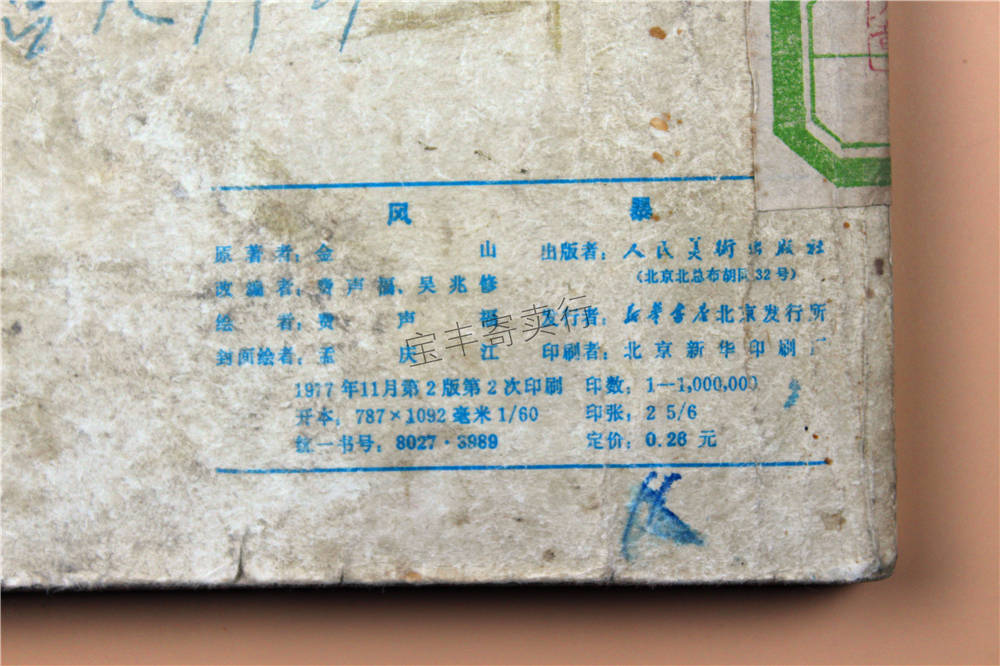 风 暴
原著者：金 山 出版者：人民美術出版社
（北京北总布胡同32号）
改编者：费声福、吴兆修
绘 者：费 声 福 发行者：新华书店北京发行所
封面绘者：孟 庆 江 印刷者：北京新华印刷厂
1977年11月第2版第2次印刷 印数：1—1,000,000
开本：787×1092毫米1/60 印张：2 5/6
统一书号：8027·3989 定价：0.26元
宝丰寄卖行